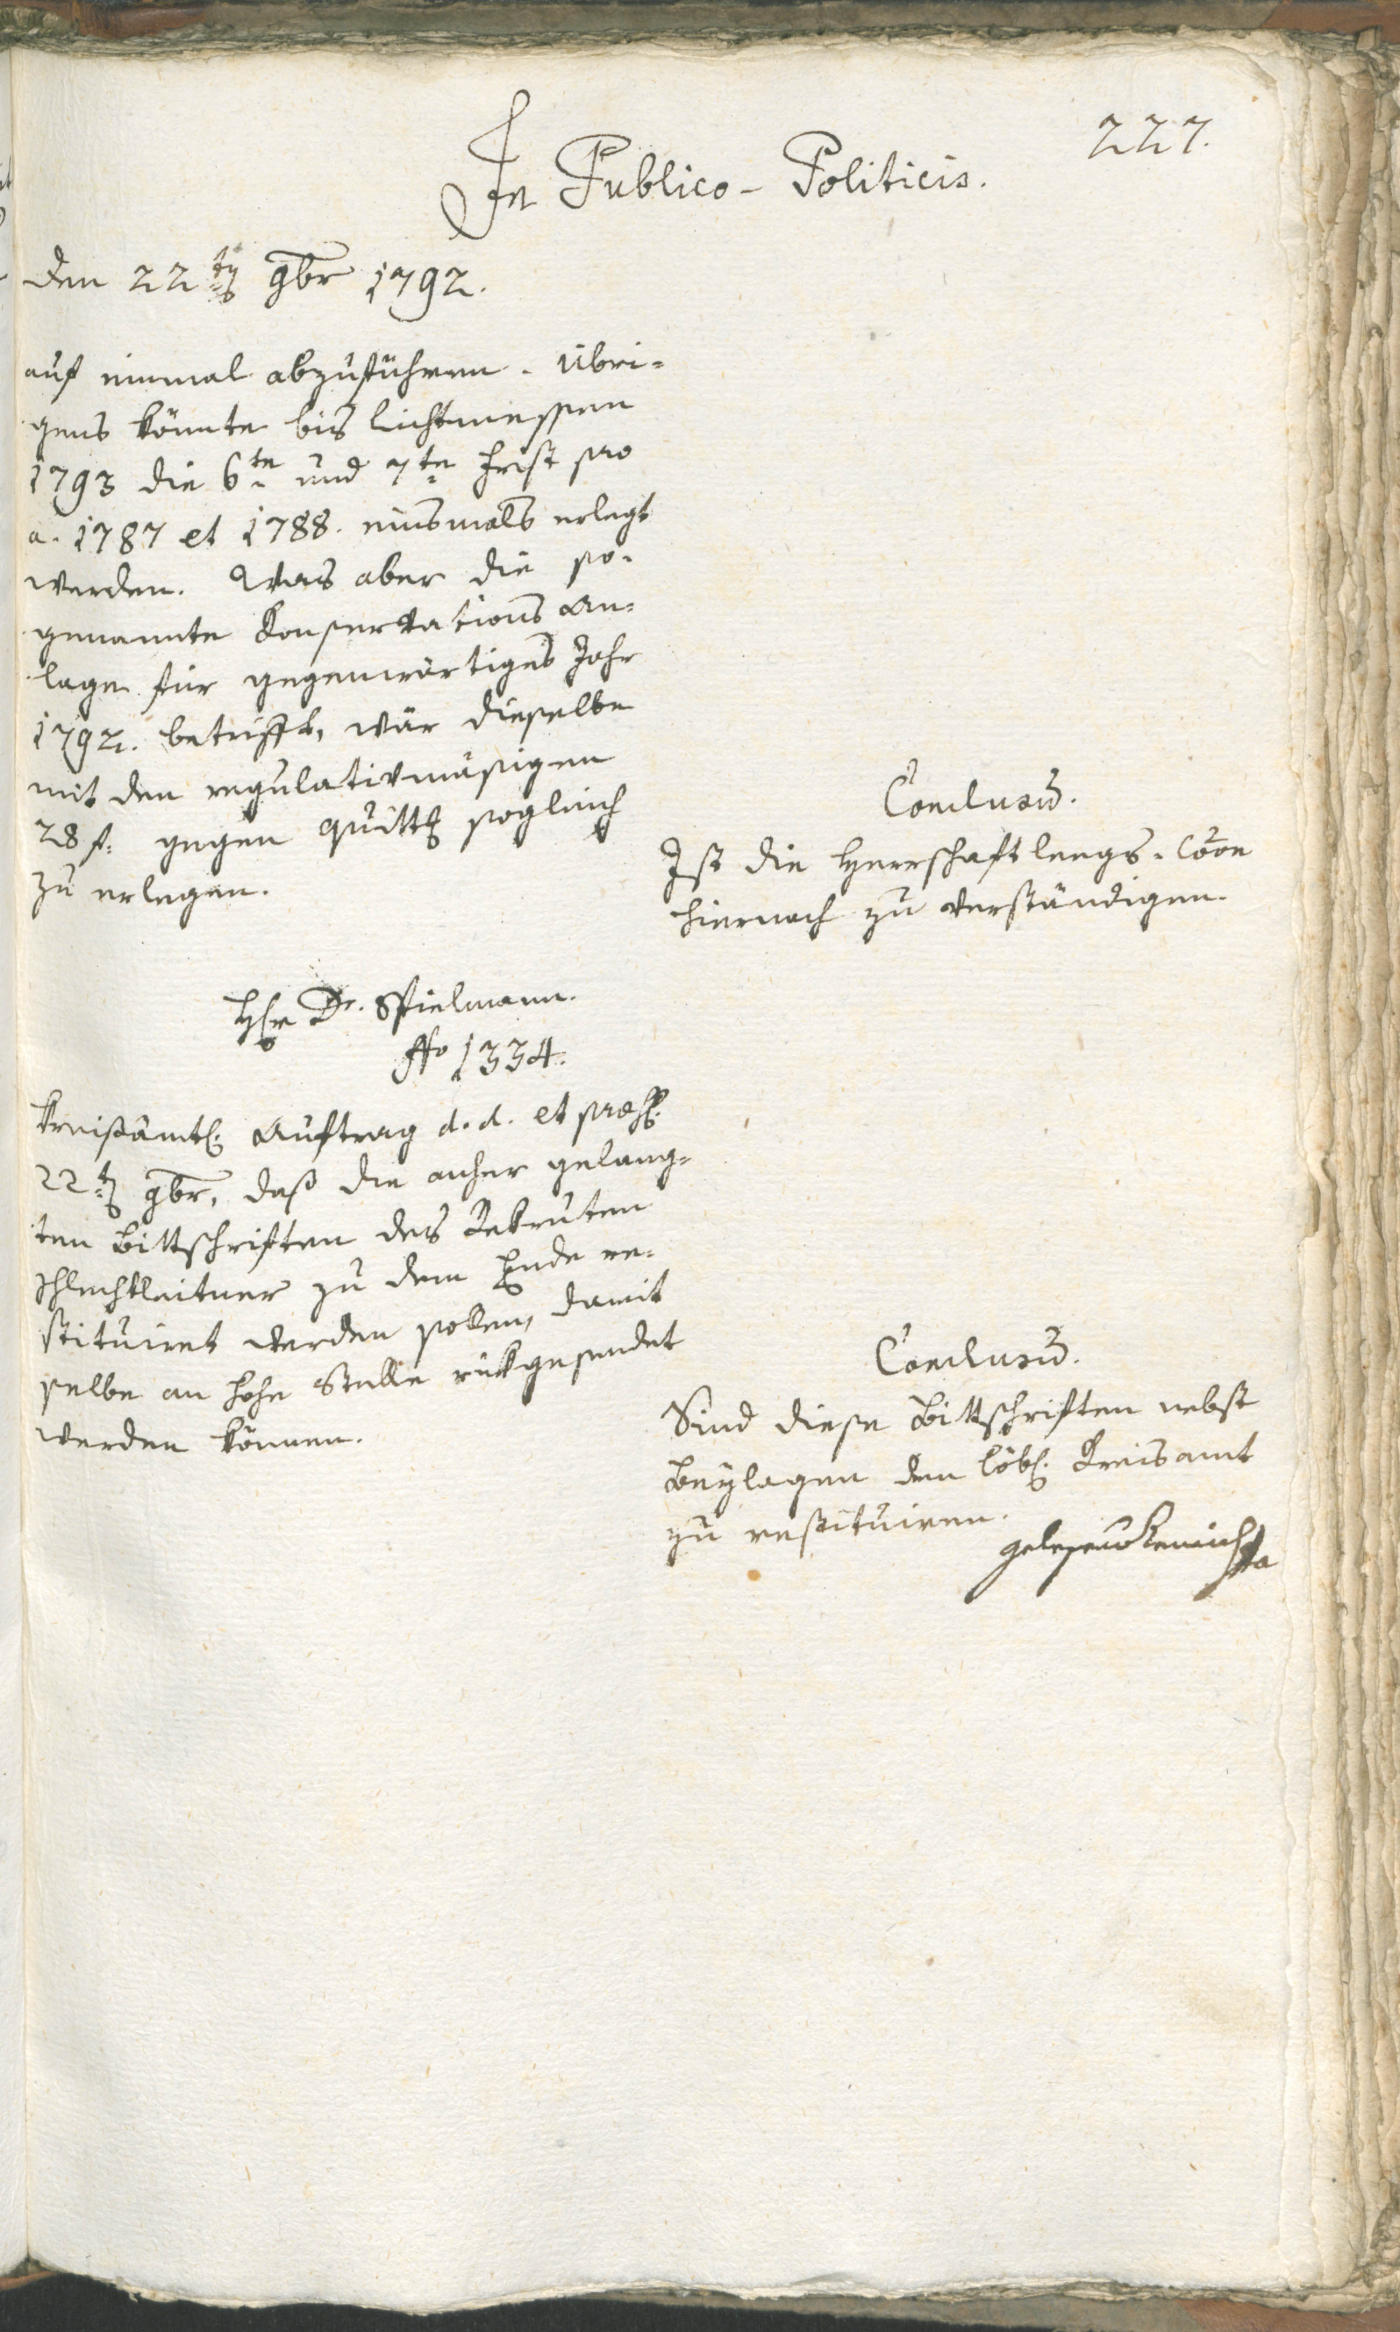 227.
In Publico-Politicis.
den 22ten 9br 1792.
auf einmal abzuführen. Übri=
gens könnte bis Lichtmessen
1793 die 6te und 7te Frist pro
a. 1787 et 1788. einsmals erlegt
werden. Was aber die so=
genannte Konservations An=
lage für gegenwärtiges Jahr
1792. betrifft, wär dieselbe
mit den regulativmäsigen
28 f. gegen Quittg sogleich
zu erlegen.
Conclusum.
Ist die Herrschaft Lengs. Coon
hiernach zu verständigen.
Hr Dr. Spielmann.
No 1334.
Kreisämtl. Auftrag d. d. et praes.
22ten 9br, daß die anher gelang=
ten Bittschriften des Rekruten
Schlechtleitner zu dem Ende re=
stituiret werden sollen, damit
selbe an hohe Stelle rückgesendet
werden können.
Conclusum.
Sind diese Bittschriften nebst
Beylagen dem löbl. Kreisamt
zu restituiren.